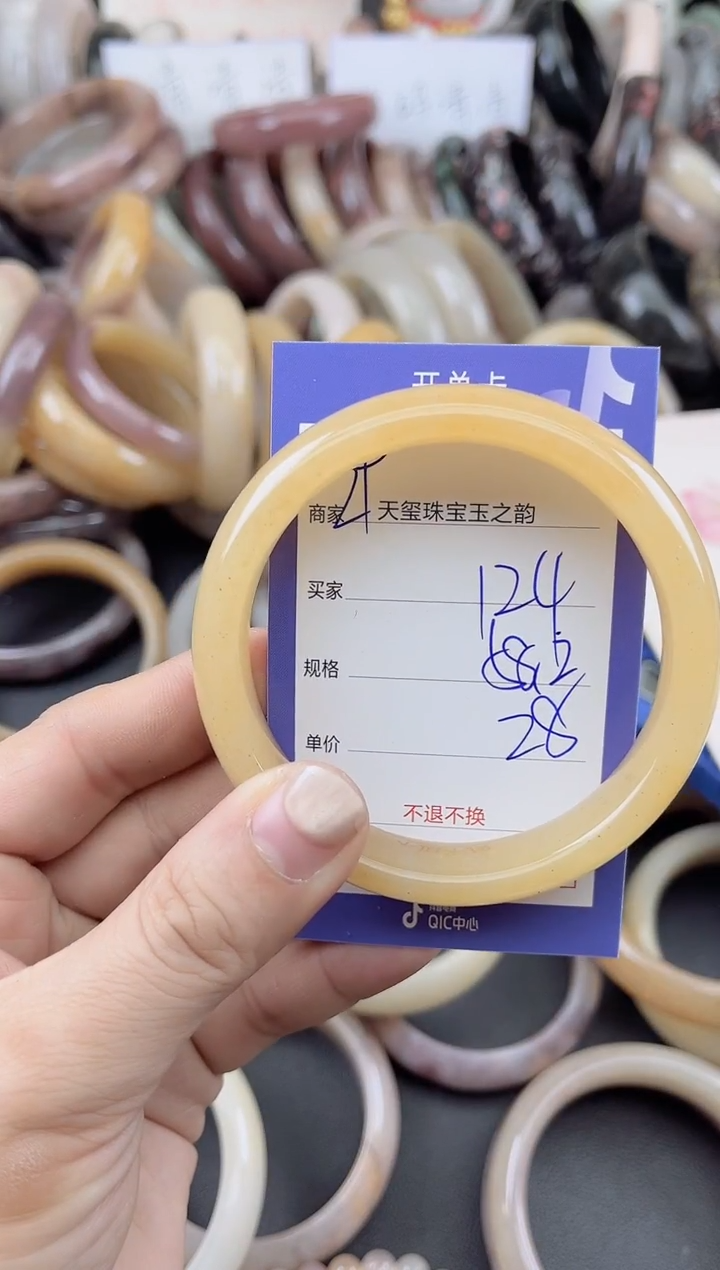 开单卡
商家 天玺珠宝玉之韵
买家 124
规格
单价 28
不退不换
QIC中心